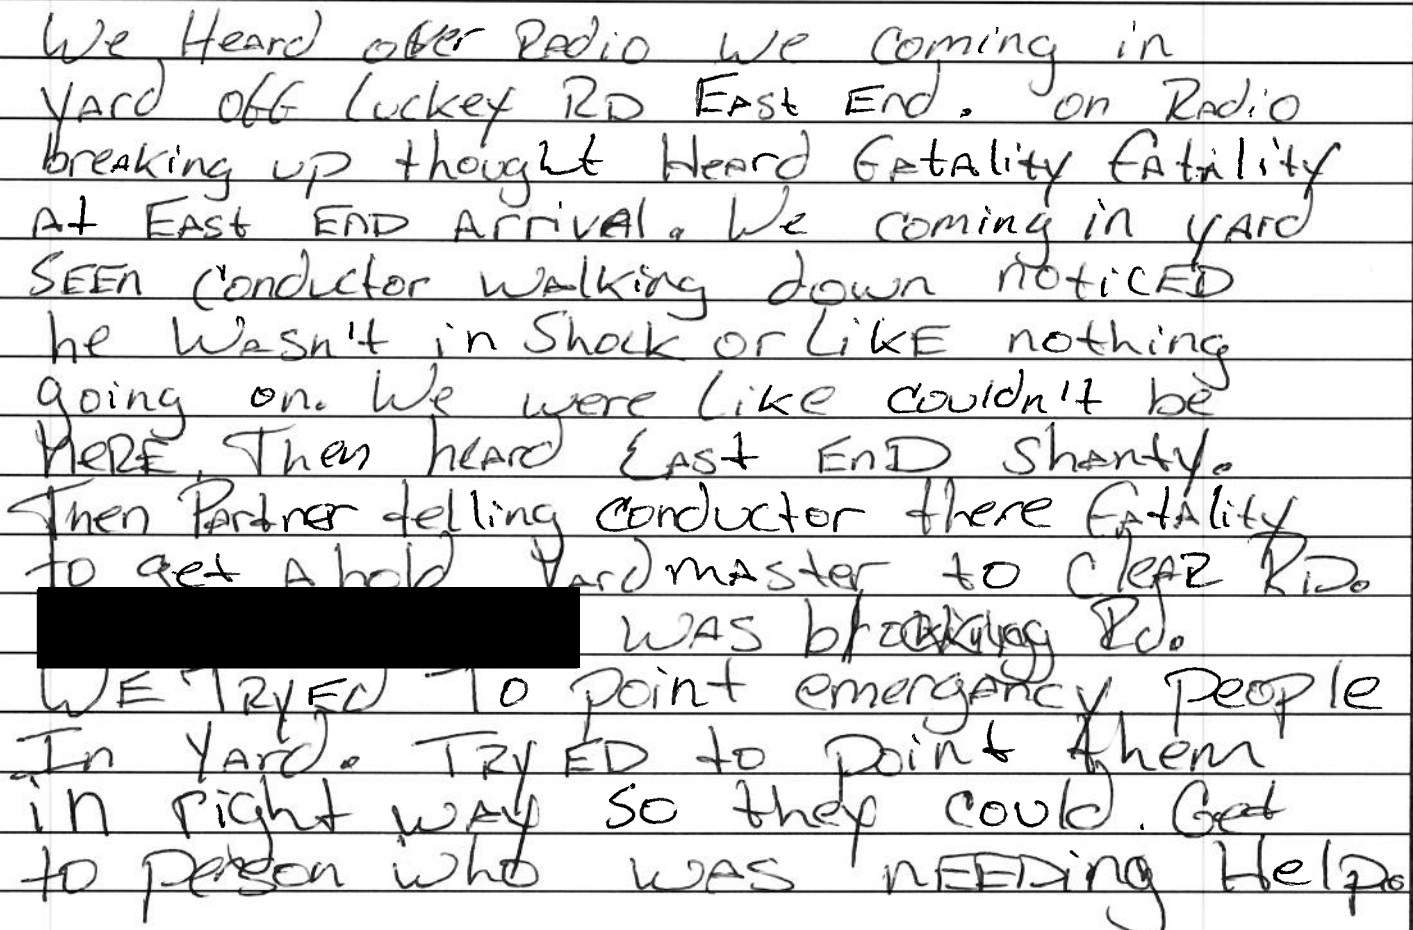 We Heard over Radio we coming in
yard off Luckey RD East End. on Radio
breaking up thought Heard fatality fatility
At East END Arrival. We coming in yard
SEEn conductor walking down noticED
he wasn't in Shock or LikE nothing
going on. We were like couldn't be
HERE. Then heard East EnD Shanty.
Then Partner telling conductor there fatality
to get A hold Yardmaster to CleAR RD.
was blocking Rd.
WE TRyED To point emergency people
In Yard. TRyED to point them
in right way so they could Get
to person who was nEEDing Help.